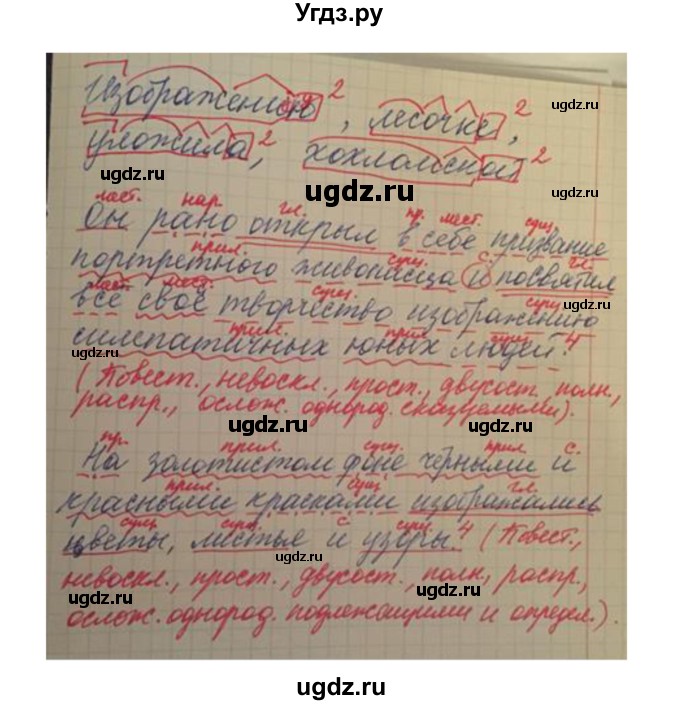 Угдз.ру
Изображению ², лесочке ²,
уложила ², хохломской ²
мест. нар. гл. пр. мест. сущ.
Он рано открыл в себе призвание
прил. сущ. с. гл.
портретного живописца и посвятил
мест. мест. сущ. сущ.
всё своё творчество изображению
прил. прил. сущ.
симпатичных юных людей.⁴
(Повест., невоскл., прост., двусост., полн.,
распр., ослож. однород. сказуемыми).
пр. прил. сущ. прил. с.
На золотистом фоне чёрными и
прил. сущ. гл.
красными красками изображались
сущ. сущ. с. сущ.
цветы, листья и узоры.⁴ (Повест.,
невоскл., прост., двусост., полн., распр.,
ослож. однород. подлежащими и определ.).
ugdz.ru
ugdz.ru
ugdz.ru
ugdz.ru
ugdz.ru
ugdz.ru
ugdz.ru
ugdz.ru
ugdz.ru
ugdz.ru
ugdz.ru
ugdz.ru
ugdz.ru
ugdz.ru